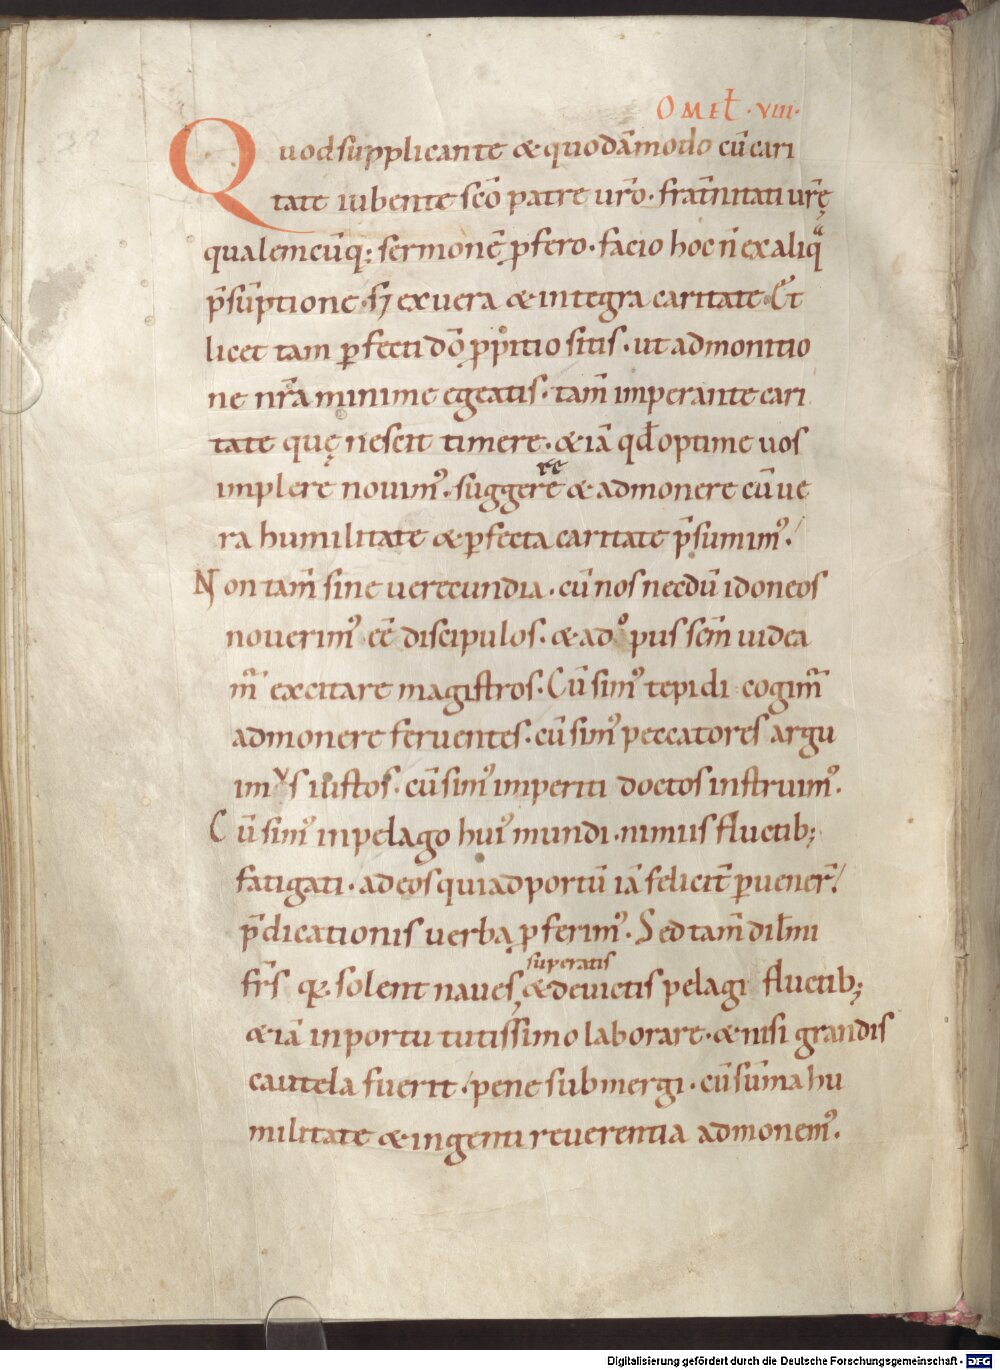 OMEŁ ·VIII·
Quodsupplicante & quodāmodo cū cari
tate iubente scō patre ur̄o · frat̄nitati ur̄ę
qualemcūq; sermonē ꝓfero · facio hoc n̄ ex aliq̄ͣ
p̄sūptione · sꝫ ex uera & integra caritate · Et
licet tam ꝑfecti dō̄ ꝓpitio sitis · ut admonitio
ne nr̄a minime egeatis · tam̄ imperante cari
tate quę nescit timere · & iā qđ optime uos
implere nouimꝰ · suggerere & admonere cū ue
ra humilitate & ꝑfecta caritate p̄sumimꝰ·/
Non tam̄ sine uerecundia · cū nos necdū idoneos
nouerimꝰ eē discipulos · & ad opus scm̄ uidea
m̄ excitare magistros · Cū simꝰ tepidi cogim̄
admonere feruentes · cū simꝰ peccatores argu
imꝰs iustos · cū simꝰ imperiti doctos instruimꝰ·
Cū simꝰ in pelago huiꝰ mundi · nimiis fluctib;
fatigati · ad eos qui ad portū iā felicit̄ ꝑuener̄·/
p̄dicationis uerba ꝓferimꝰ · Sed tam̄ dilm̄i
frs̄ q· solent naues,
superatis
& deuictis pelagi fluctib;
& iā in portu tutissimo laborare · & nisi grandis
cautela fuerit·/ pene submergi · cū sūma hu
militate & ingenti reuerentia admonemꝰ·
Digitalisierung gefördert durch die Deutsche Forschungsgemeinschaft - DFG